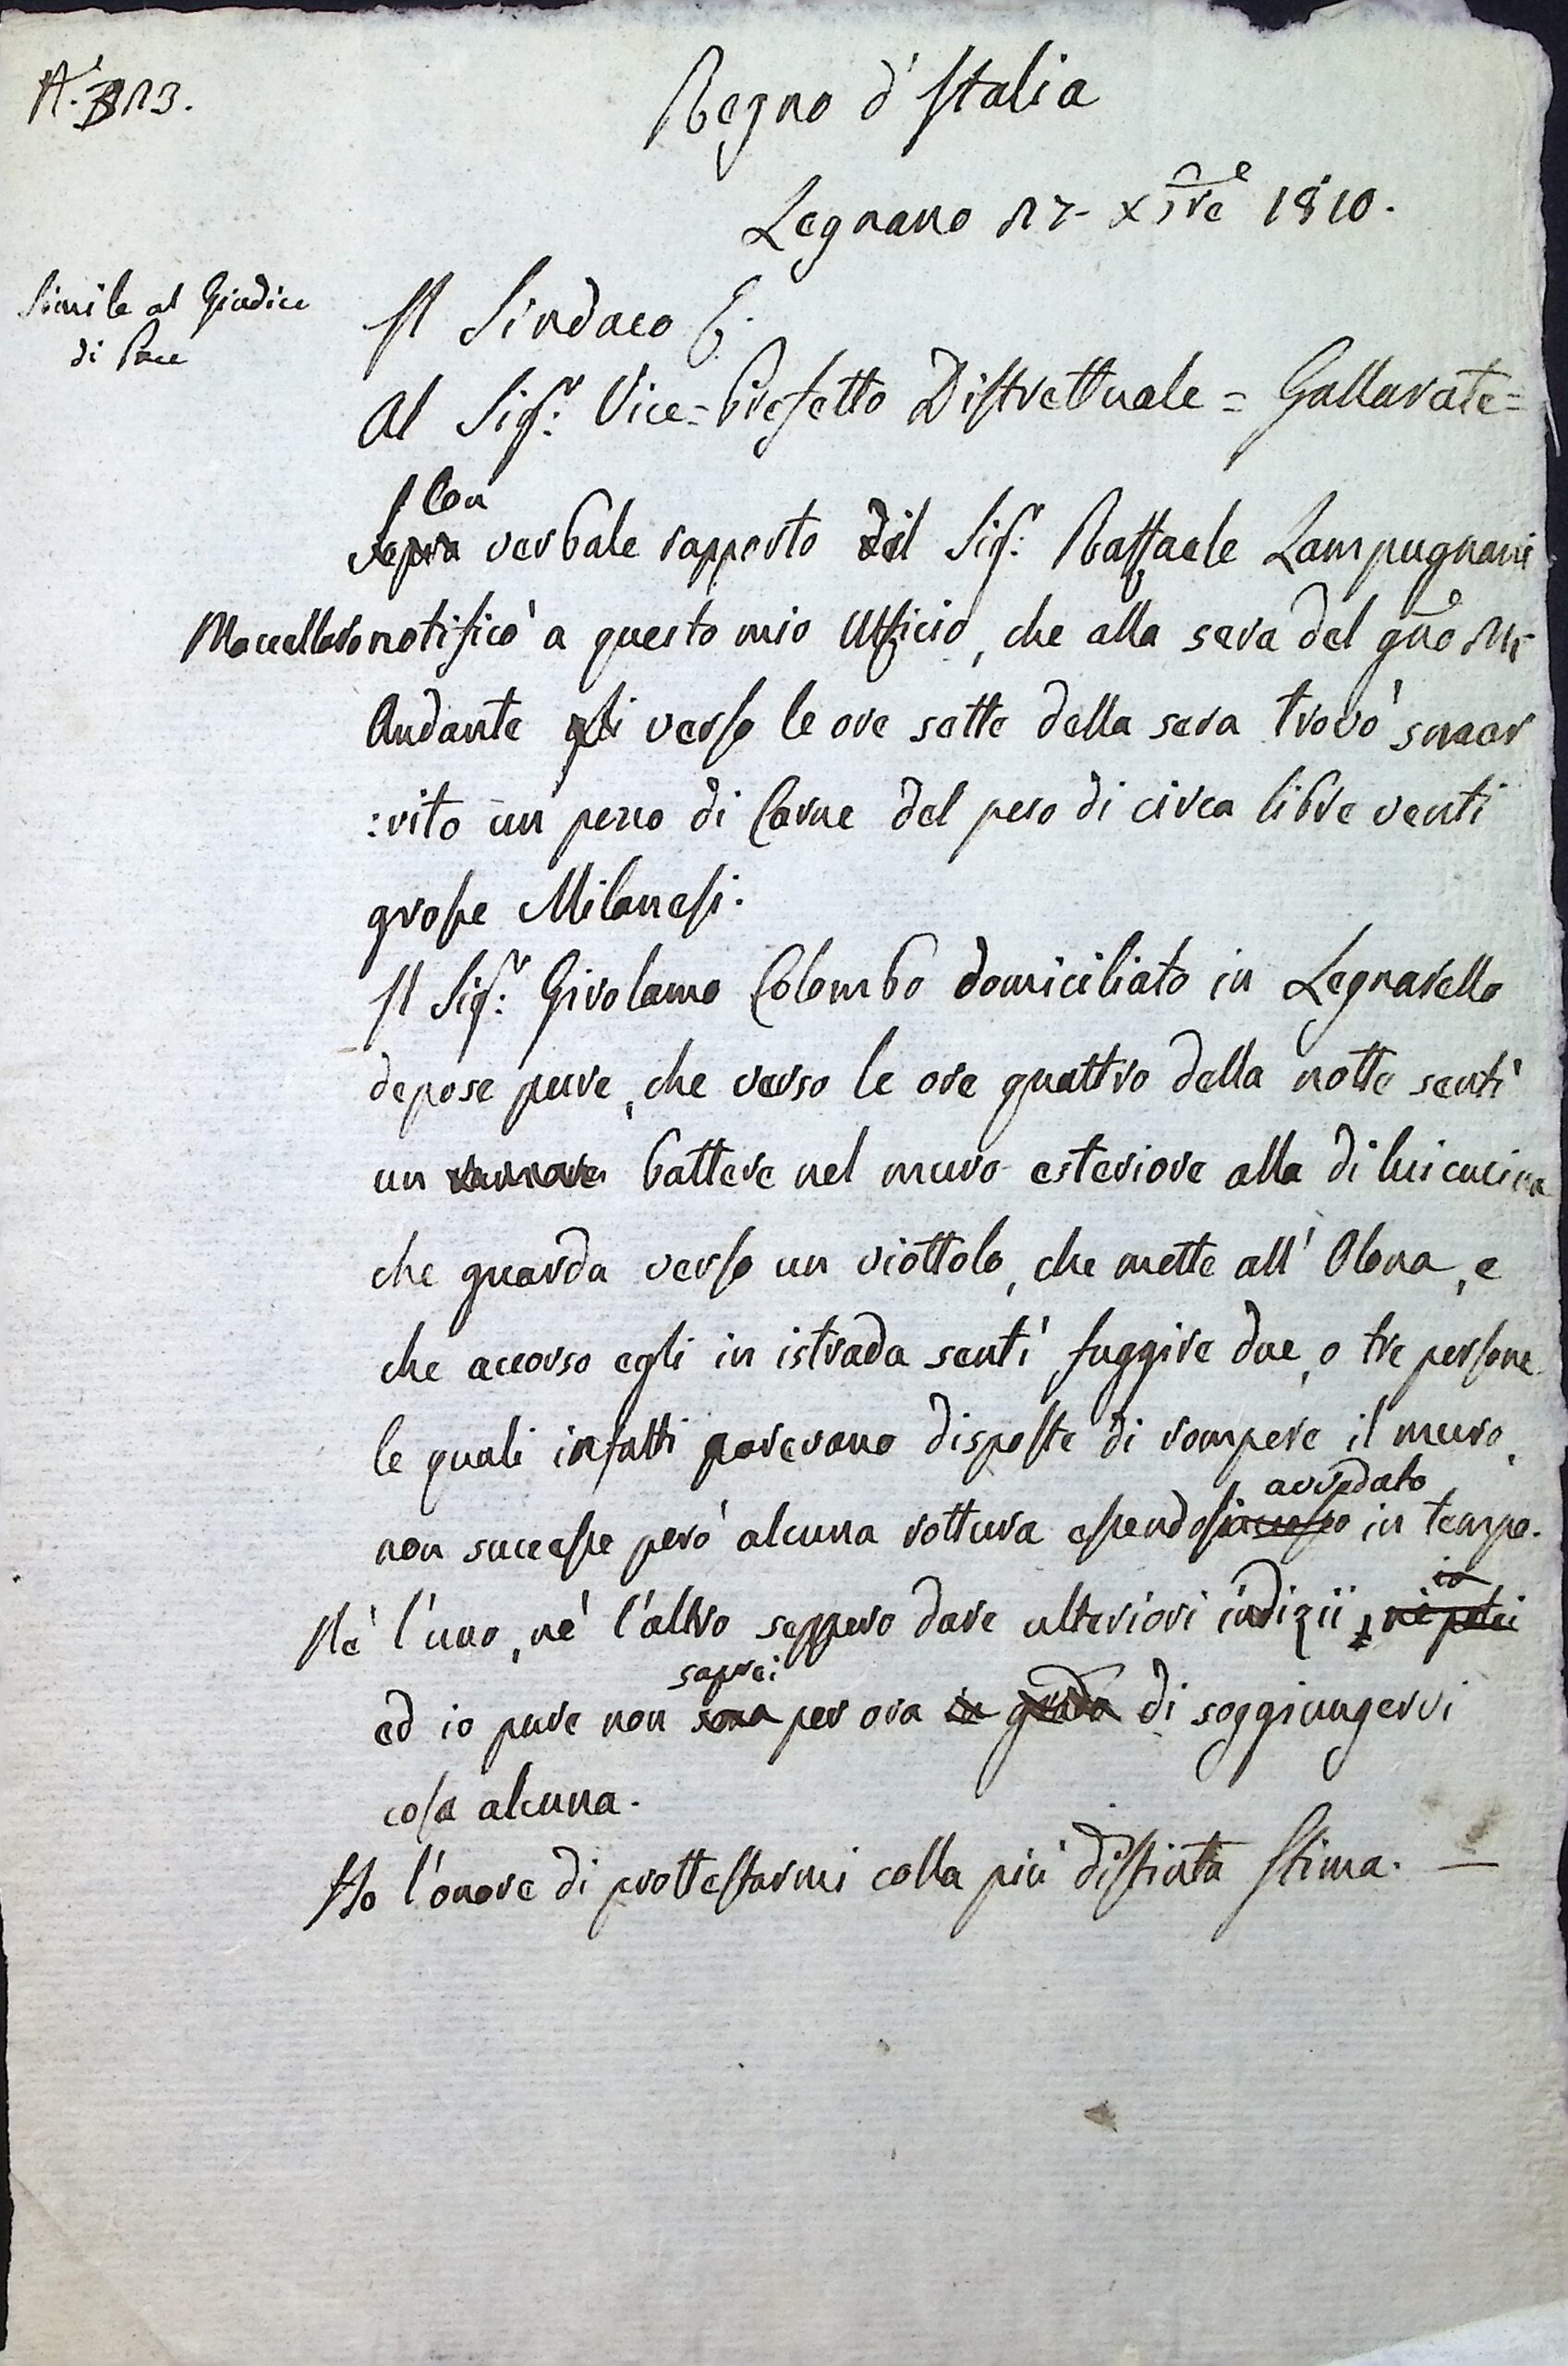 Regno d'Italia
Legnano 17 Xbre 1810.
Simile al Giudice
di Pace
Il Sindaco
Al Sigr. Vice=Prefetto Distrettuale = Gallarate=
Con
Sopra verbale rapporto il Sigr. Raffaele Lampugnani
Macellaro notificò a questo mio Ufficio, che alla sera del gno
Andante verso le ore sette della sera trovò smar
:rito un pezzo di Carne del peso di circa libre venti
grosse Milanesi.
Il Sigr. Girolamo Colombo domiciliato in Legnarello
depose pure, che verso le ore quattro della notte sentì
un rumore battere nel muro esteriore alla di lui cucina
che guarda verso un viottolo, che mette all'Olona, e
che accorso egli in istrada sentì fuggire due, o tre persone
le quali infatti parevano disposte di rompere il muro,
avveduto
non successe però alcuna rottura essendosi in tempo.
io
Nè l'uno, nè l'altro seppero dare ulteriori indizii, nè potei
saprei
ed io pure non sono per ora in grado di soggiungervi
cosa alcuna.
Ho l'onore di prottestarmi colla più distinta stima. —